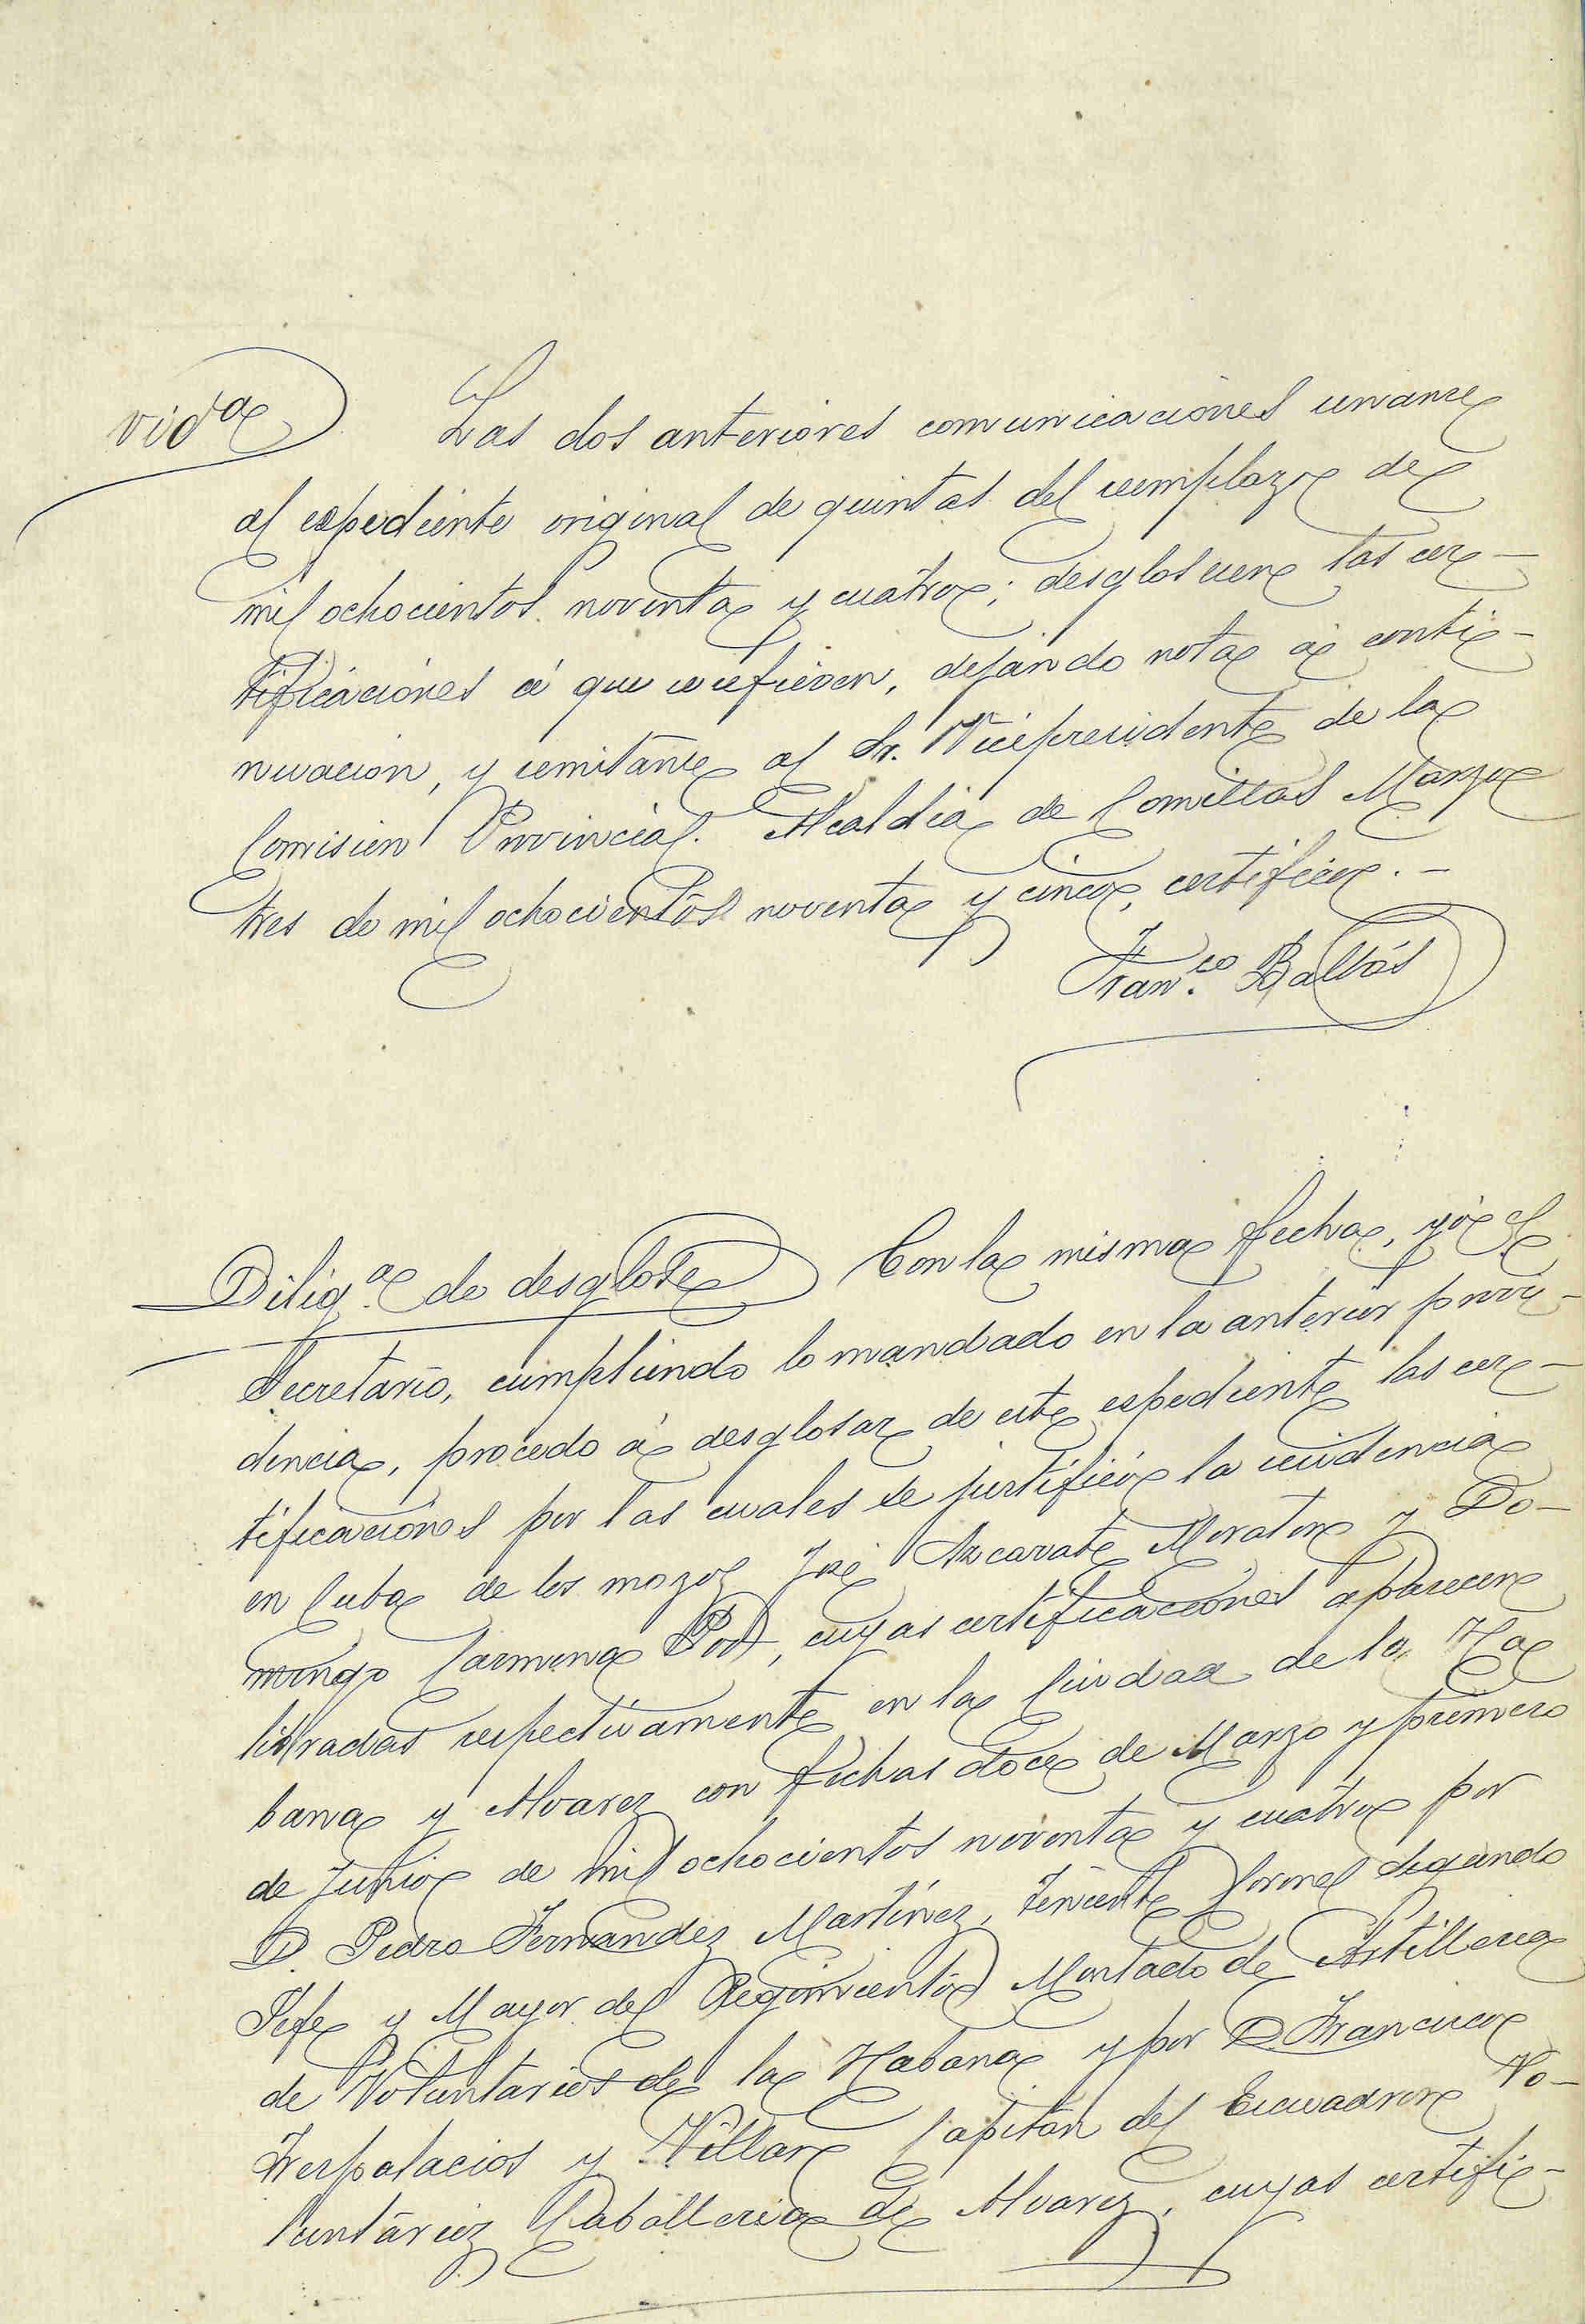 vid.ª Las dos anteriores comunicaciones unanse
al espediente original de quintas del reemplazo de
mil ochocientos noventa y cuatro; desglosense las cer-
tificaciones á que se refieren, dejando nota á conti-
nuacion, y remitanse al Sr. Vicepresidente de la
Comision Provincial. Alcaldia de Comillas Marzo
tres de mil ochocientos noventa y cinco, certifico.-
Fran.co Balbás
Dilig.ª de desglose Con la misma fecha, yó el
Secretario, cumpliendo lo mandado en la anterior provi-
dencia, procedo á desglosar de este espediente las cer-
tificaciones por las cuales se justificó la residencia
en Cuba de los mozos José Azcarate Moraton y Do-
mingo Carmona Poo, cuyas certificaciones aparecen
libradas respectivamente en la Ciudad de la Ha
bana y Alvarez con fechas doce de Marzo y primero
de Junio de mil ochocientos noventa y cuatro por
D. Pedro Fernandez Martinez, teniente Coronel segundo
Jefe y Mayor del Regimiento Montado de Artilleria
de Voluntarios de la Habana y por D. Francisco
Trespalacios y Villar Capitan del Escuadron Vo-
luntarios Caballeria de Alvarez, cuyas certifi-